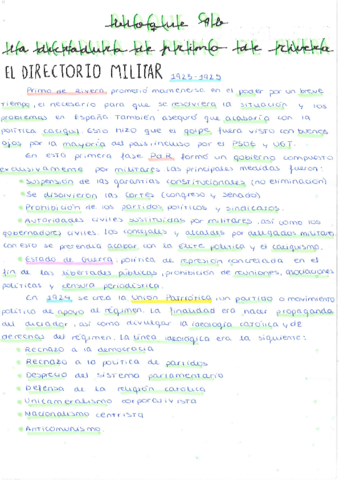 La dictadura de Primo de Rivera
EL DIRECTORIO MILITAR 1923-1925
Primo de Rivera prometió mantenerse en el poder por un breve
tiempo, el necesario para que se resolviera la situación y los
problemas en España también aseguró que acabaría con la
política caciquil. Esto hizo que el golpe fuera visto con buenos
ojos por la mayoría del país incluso por el PSOE y UGT.
En esta primera fase PdR formó un gobierno compuesto
exclusivamente por militares las principales medidas fueron:
Suspensión de las garantías constitucionales (no eliminación)
Se disolvieron las Cortes (congreso y senado)
Prohibición de los partidos políticos y sindicatos.
Autoridades civiles sustituidas por militares así como los
gobernadores civiles, los concejales y alcaldes por delegados militares
con esto se pretendía acabar con la élite política y el caciquismo.
Estado de Guerra, política de represión concretada en el
fin de las libertades públicas, prohibición de reuniones, asociaciones
políticas y censura periodística.
En 1924, se crea la Unión Patriótica, un partido o movimiento
político de apoyo al régimen. La finalidad era hacer propaganda
del dictador, así como divulgar la ideología católica y de
derechas del régimen. La línea ideológica era la siguiente:
Rechazo a la democracia
Rechazo a la política de partidos
Desprecio del sistema parlamentario
Defensa de la religión católica
Unicameralismo corporativista
Nacionalismo centrista
Anticomunismo.